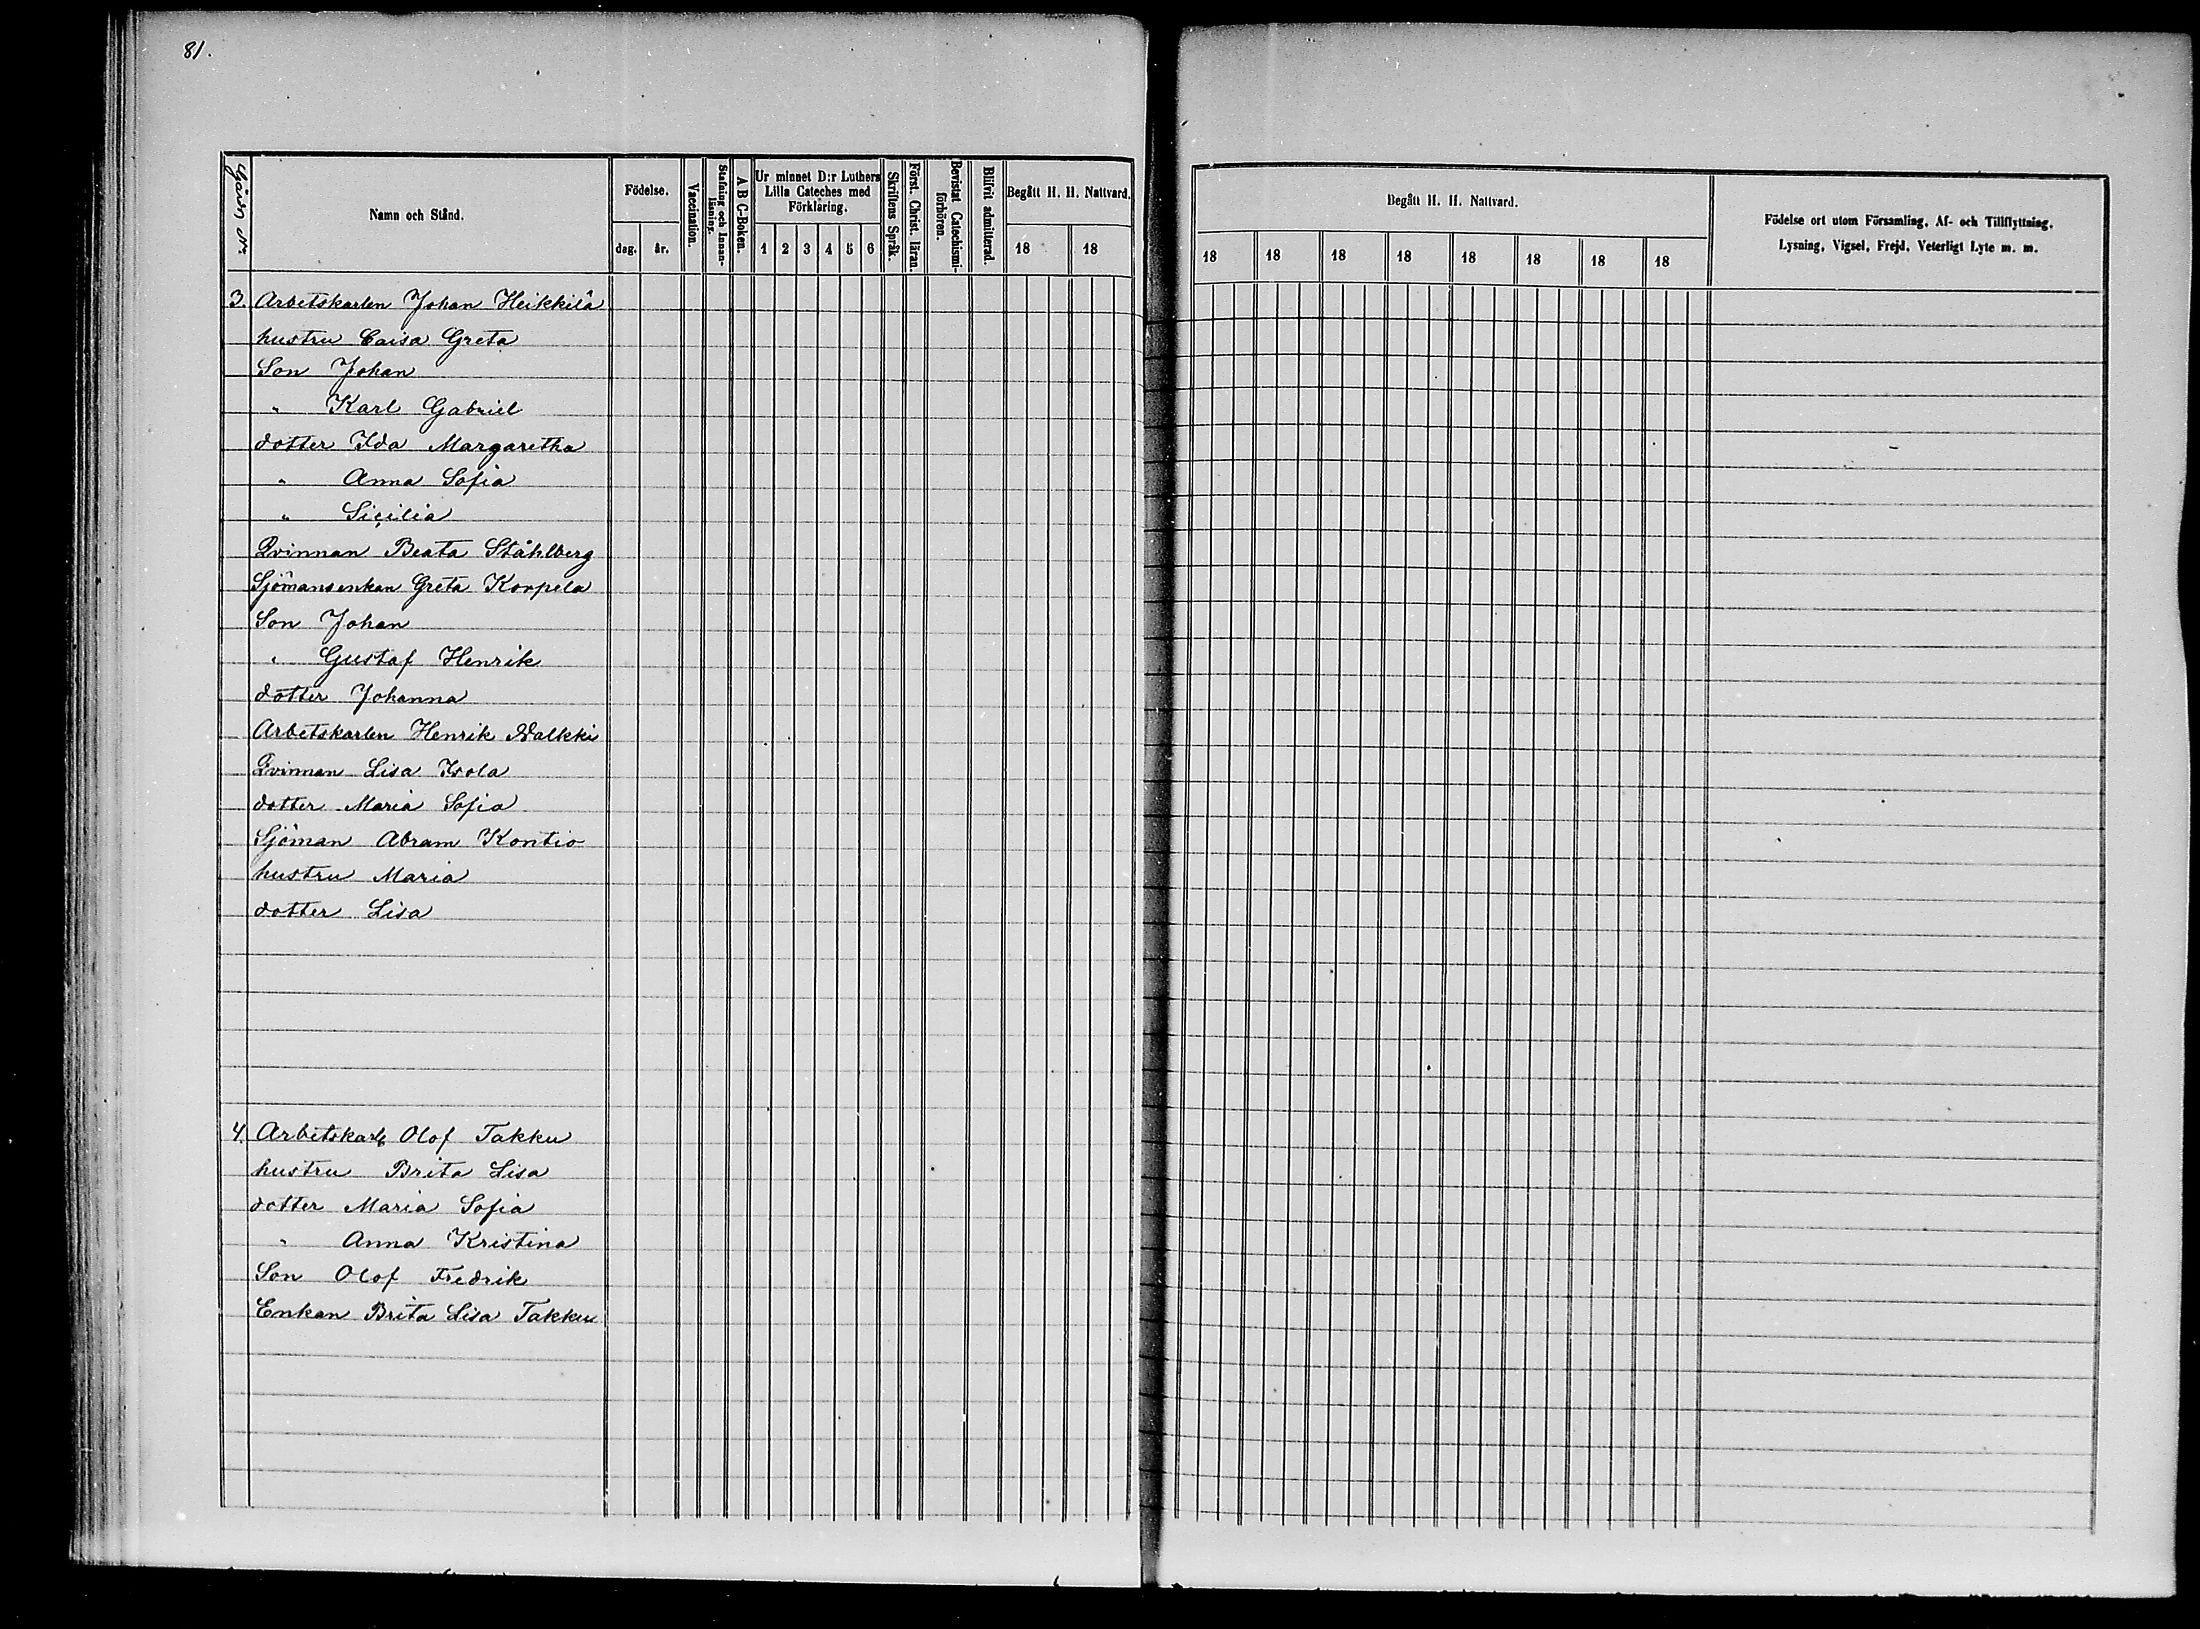 81.
Gård N:o
Namn och Stånd.
Födelse.
dag.
år.
Vaccination.
Stafning och Innanläsning.
A B C-Boken.
Ur minnet D:r Luthers
Lilla Cateches med
Förklaring.
1 2 3 4 5 6
Skriftens Språk.
Först. Christ. läran.
Bevistat Catechismi-
förhören.
Blifvit admitterad.
Begått H. H. Nattvard.
18 18
Begått H. H. Nattvard.
18 18 18 18 18 18 18 18
Födelse ort utom Församling, Af- och Tillflyttning,
Lysning, Vigsel, Frejd, Veterligt Lyte m. m.
3. Arbetskarlen Johan Heikkilä
hustru Caisa Greta
Son Johan
" Karl Gabriel
dotter Ida Margaretha
" Anna Sofia
" Sicilia
Qvinnan Beata Ståhlberg
Sjömansenkan Greta Korpela
Son Johan
" Gustaf Henrik
dotter Johanna
Arbetskarlen Henrik
Qvinnan Lisa
dotter Maria Sofia
Sjöman Abram Kontio
hustru Maria
dotter Lisa
4. Arbetskarl Olof Takku
hustru Brita Lisa
dotter Maria Sofia
" Anna Kristina
Son Olof Fredrik
Enkan Brita Lisa Takku